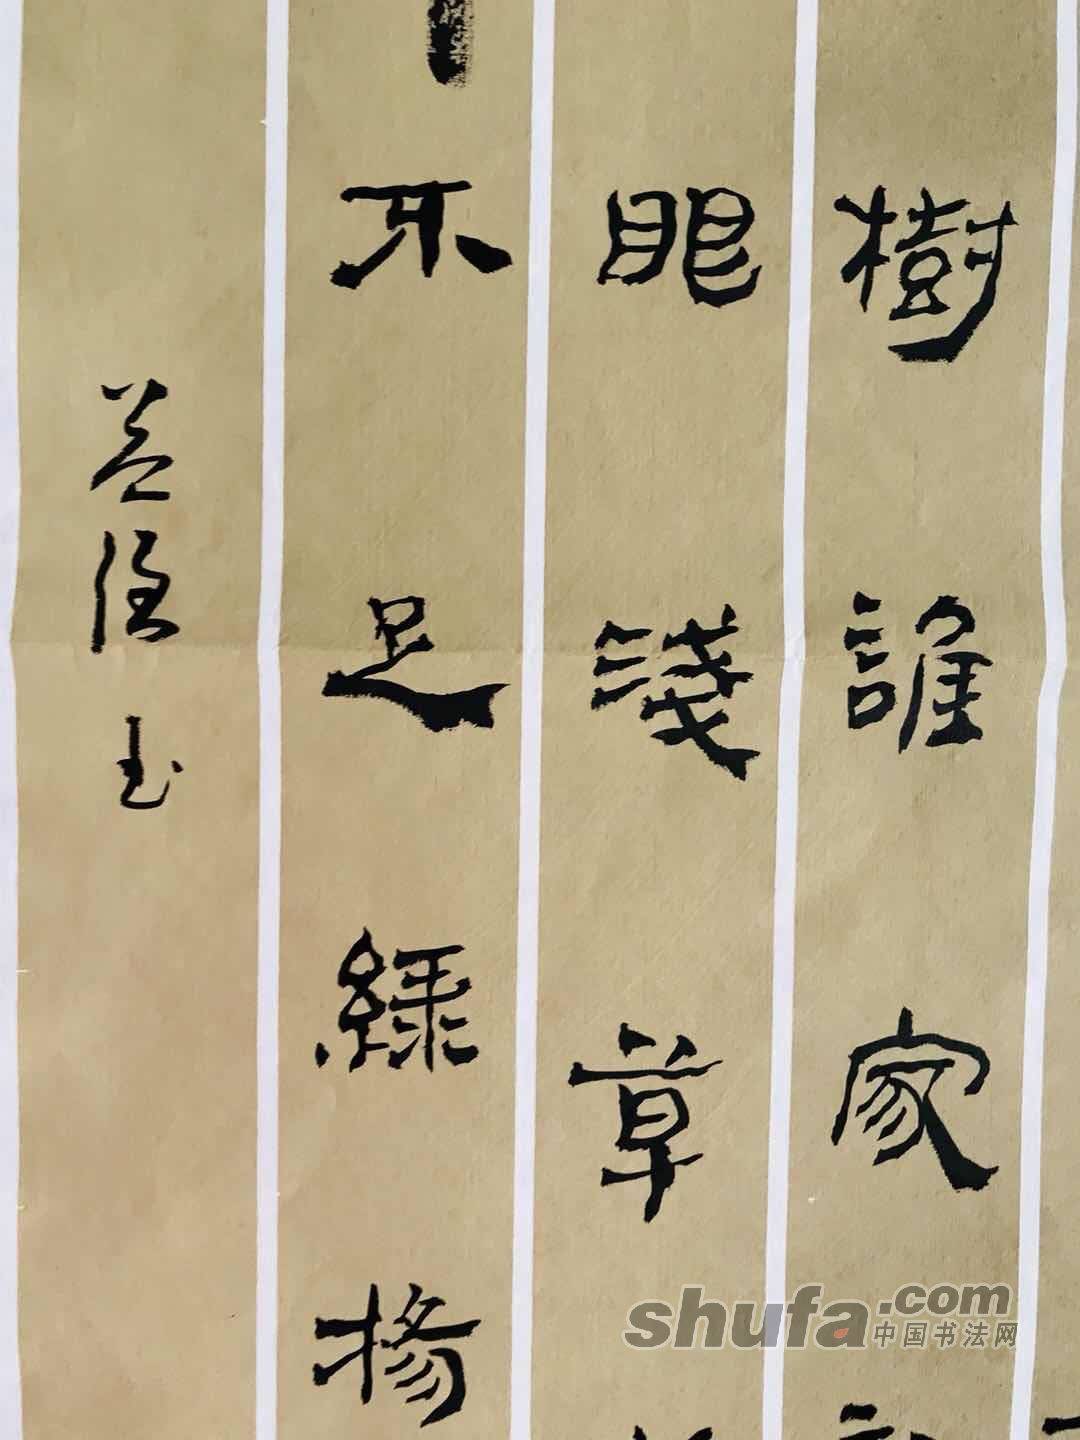 樹誰家
眼淺草
不足綠楊
shufa.com
中国书法网